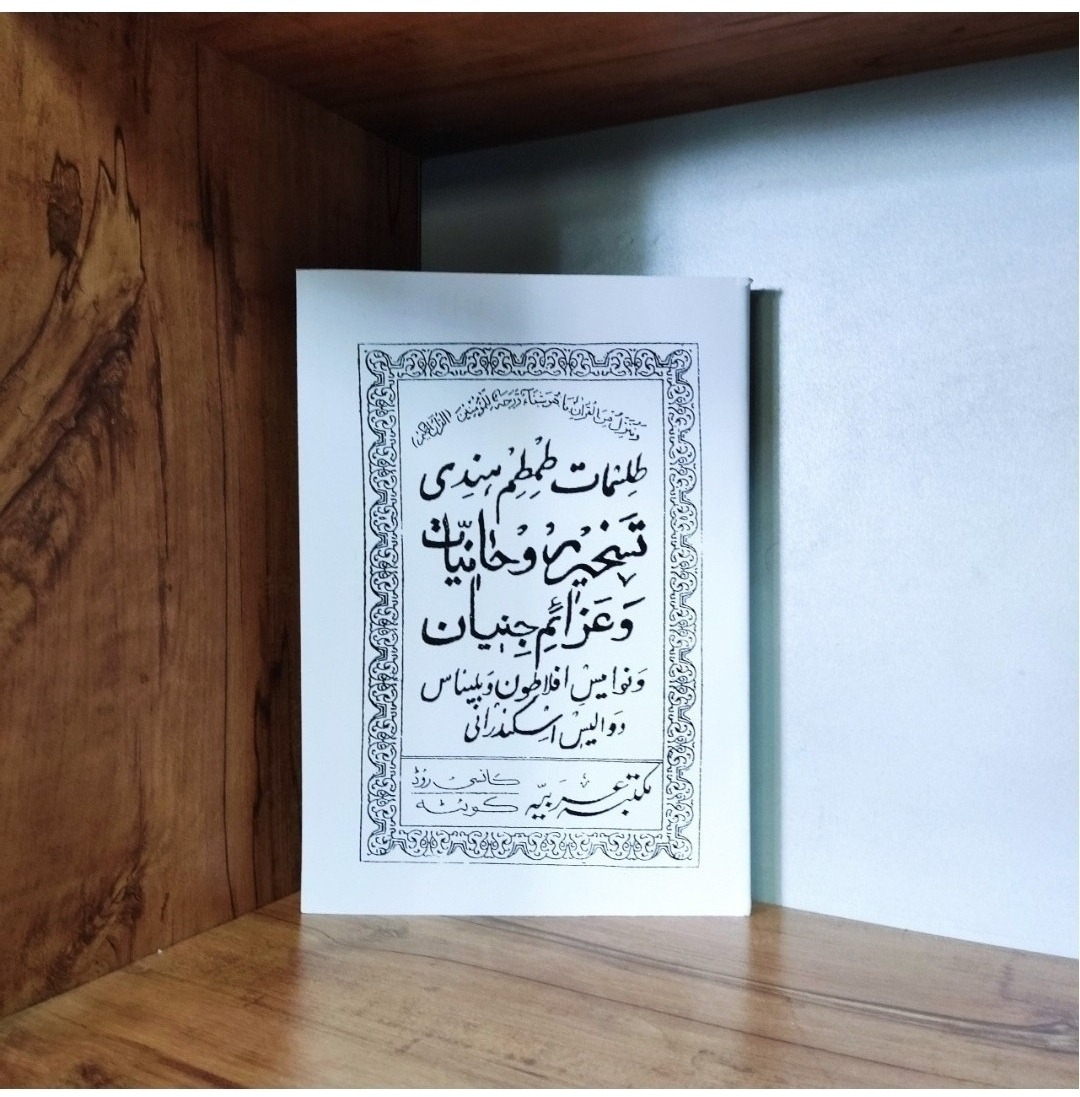 وَنُنَزِّلُ مِنَ الْقُرْآنِ مَا هُوَ شِفَاءٌ وَرَحْمَةٌ لِّلْمُؤْمِنِينَ
طِلِسْمَات طِمْطِمْ هِنْدِی
تَسْخِیْرِ رُوْحَانِیَّات
وَعَزَائِمِ جِنِّیَان
وَنوامِیسِ افلاطُون وَبلیناس
وَوالیسِ اسْکَنْدَرانی
مکتبہ عَرَبِیّہ
کانسی روڈ
کوئٹہ